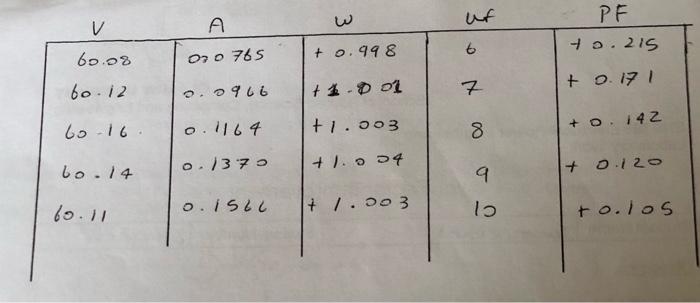 V A W uf PF
60.08 0.0765 + 0.998 6 + 0.215
60.12 0.0966 + 1.001 7 + 0.171
60.16. 0.1164 +1.003 8 + 0.142
60.14 0.1370 +1.004 9 + 0.120
60.11 0.1566 + 1.003 10 + 0.105